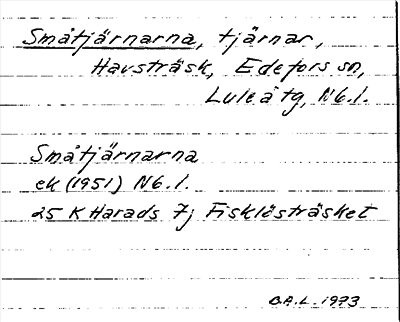 Småtjärnarna, tjärnar,
Havsträsk, Edefors sn,
Luleå tg, Nb.l.
Småtjärnarna
ek (1951) Nb.l.
25 K Harads 7j Fisklösträsket
B.A.L. 1973